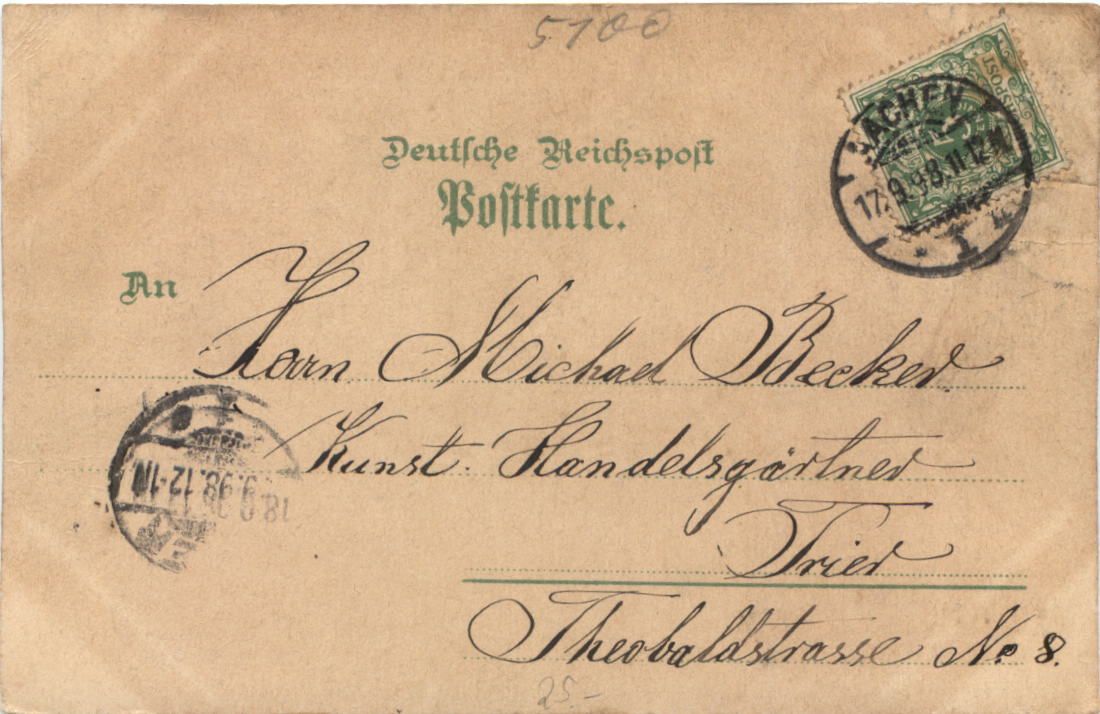 5100
Deutsche Reichspost
Postkarte.
SPOST
AACHEN
17.9.98.11-12N
1
An
Herrn Michael Becker
Kunst. Handelsgärtner
Trier
Theobaldstrasse No 8.
18.9.98.12-1N
25.-